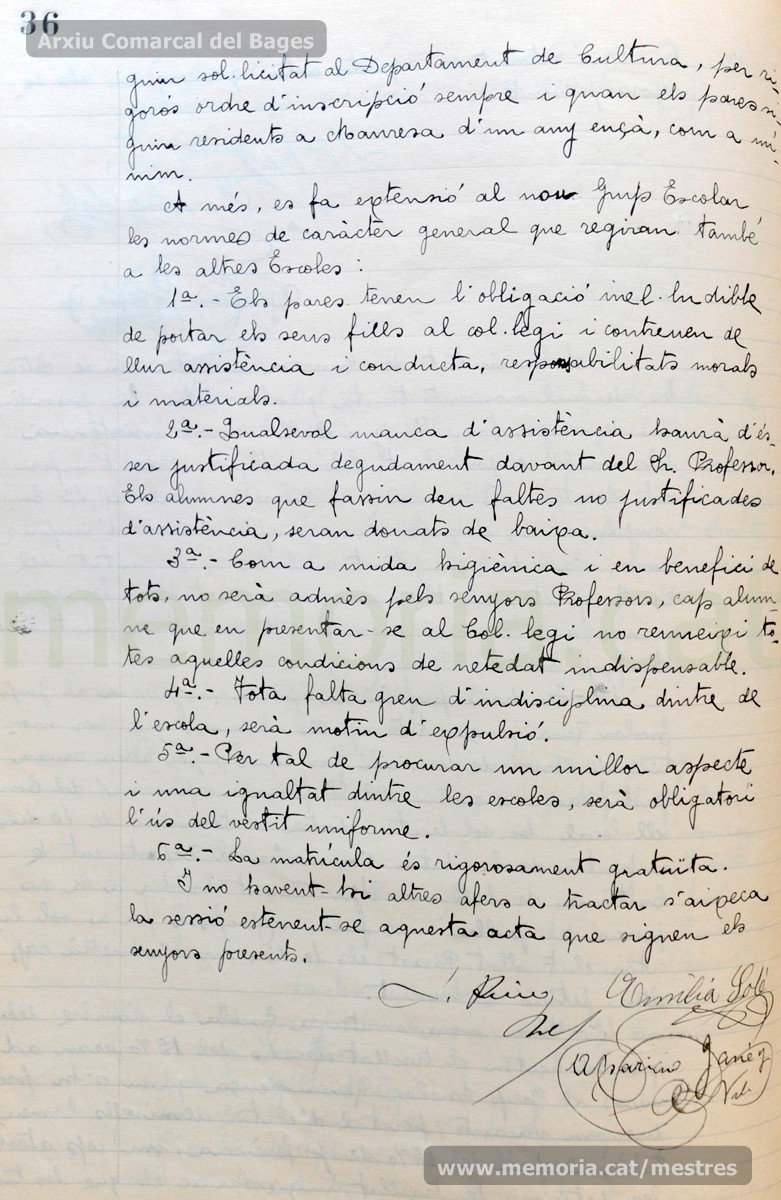 36
Arxiu Comarcal del Bages
guin sol·licitat al Departament de Cultura, per ri-
gorós ordre d'inscripció sempre i quan els pares si-
guin residents a Manresa d'un any ençà, com a mí-
nim.
A més, es fa extensió al nou Grup Escolar
les normes de caràcter general que regiran també
a les altres Escoles:
1ª.- Els pares tenen l'obligació inel·ludible
de portar els seus fills al col·legi i contreuen de
llur assistència i conducta, responsabilitats morals
i materials.
2ª.- Qualsevol manca d'assistència haurà d'és-
ser justificada degudament davant del Sr. Professor.
Els alumnes que fassin deu faltes no justificades
d'assistència, seran donats de baixa.
3ª.- Com a mida higiènica i en benefici de
tots, no serà admès pels senyors Professors, cap alum-
ne que en presentar-se al Col·legi no reuneixi to-
tes aquelles condicions de netedat indispensable.
4ª.- Tota falta greu d'indisciplina dintre de
l'escola, serà motiu d'expulsió.
5ª.- Per tal de procurar un millor aspecte
i una igualtat dintre les escoles, serà obligatori
l'ús del vestit uniforme.
6ª.- La matrícula és rigorosament gratuïta.
I no havent-hi altres afers a tractar s'aixeca
la sessió estenent-se aquesta acta que signen els
senyors presents.
Emilià Solé
Aparicio Janés
memoria.cat
www.memoria.cat/mestres